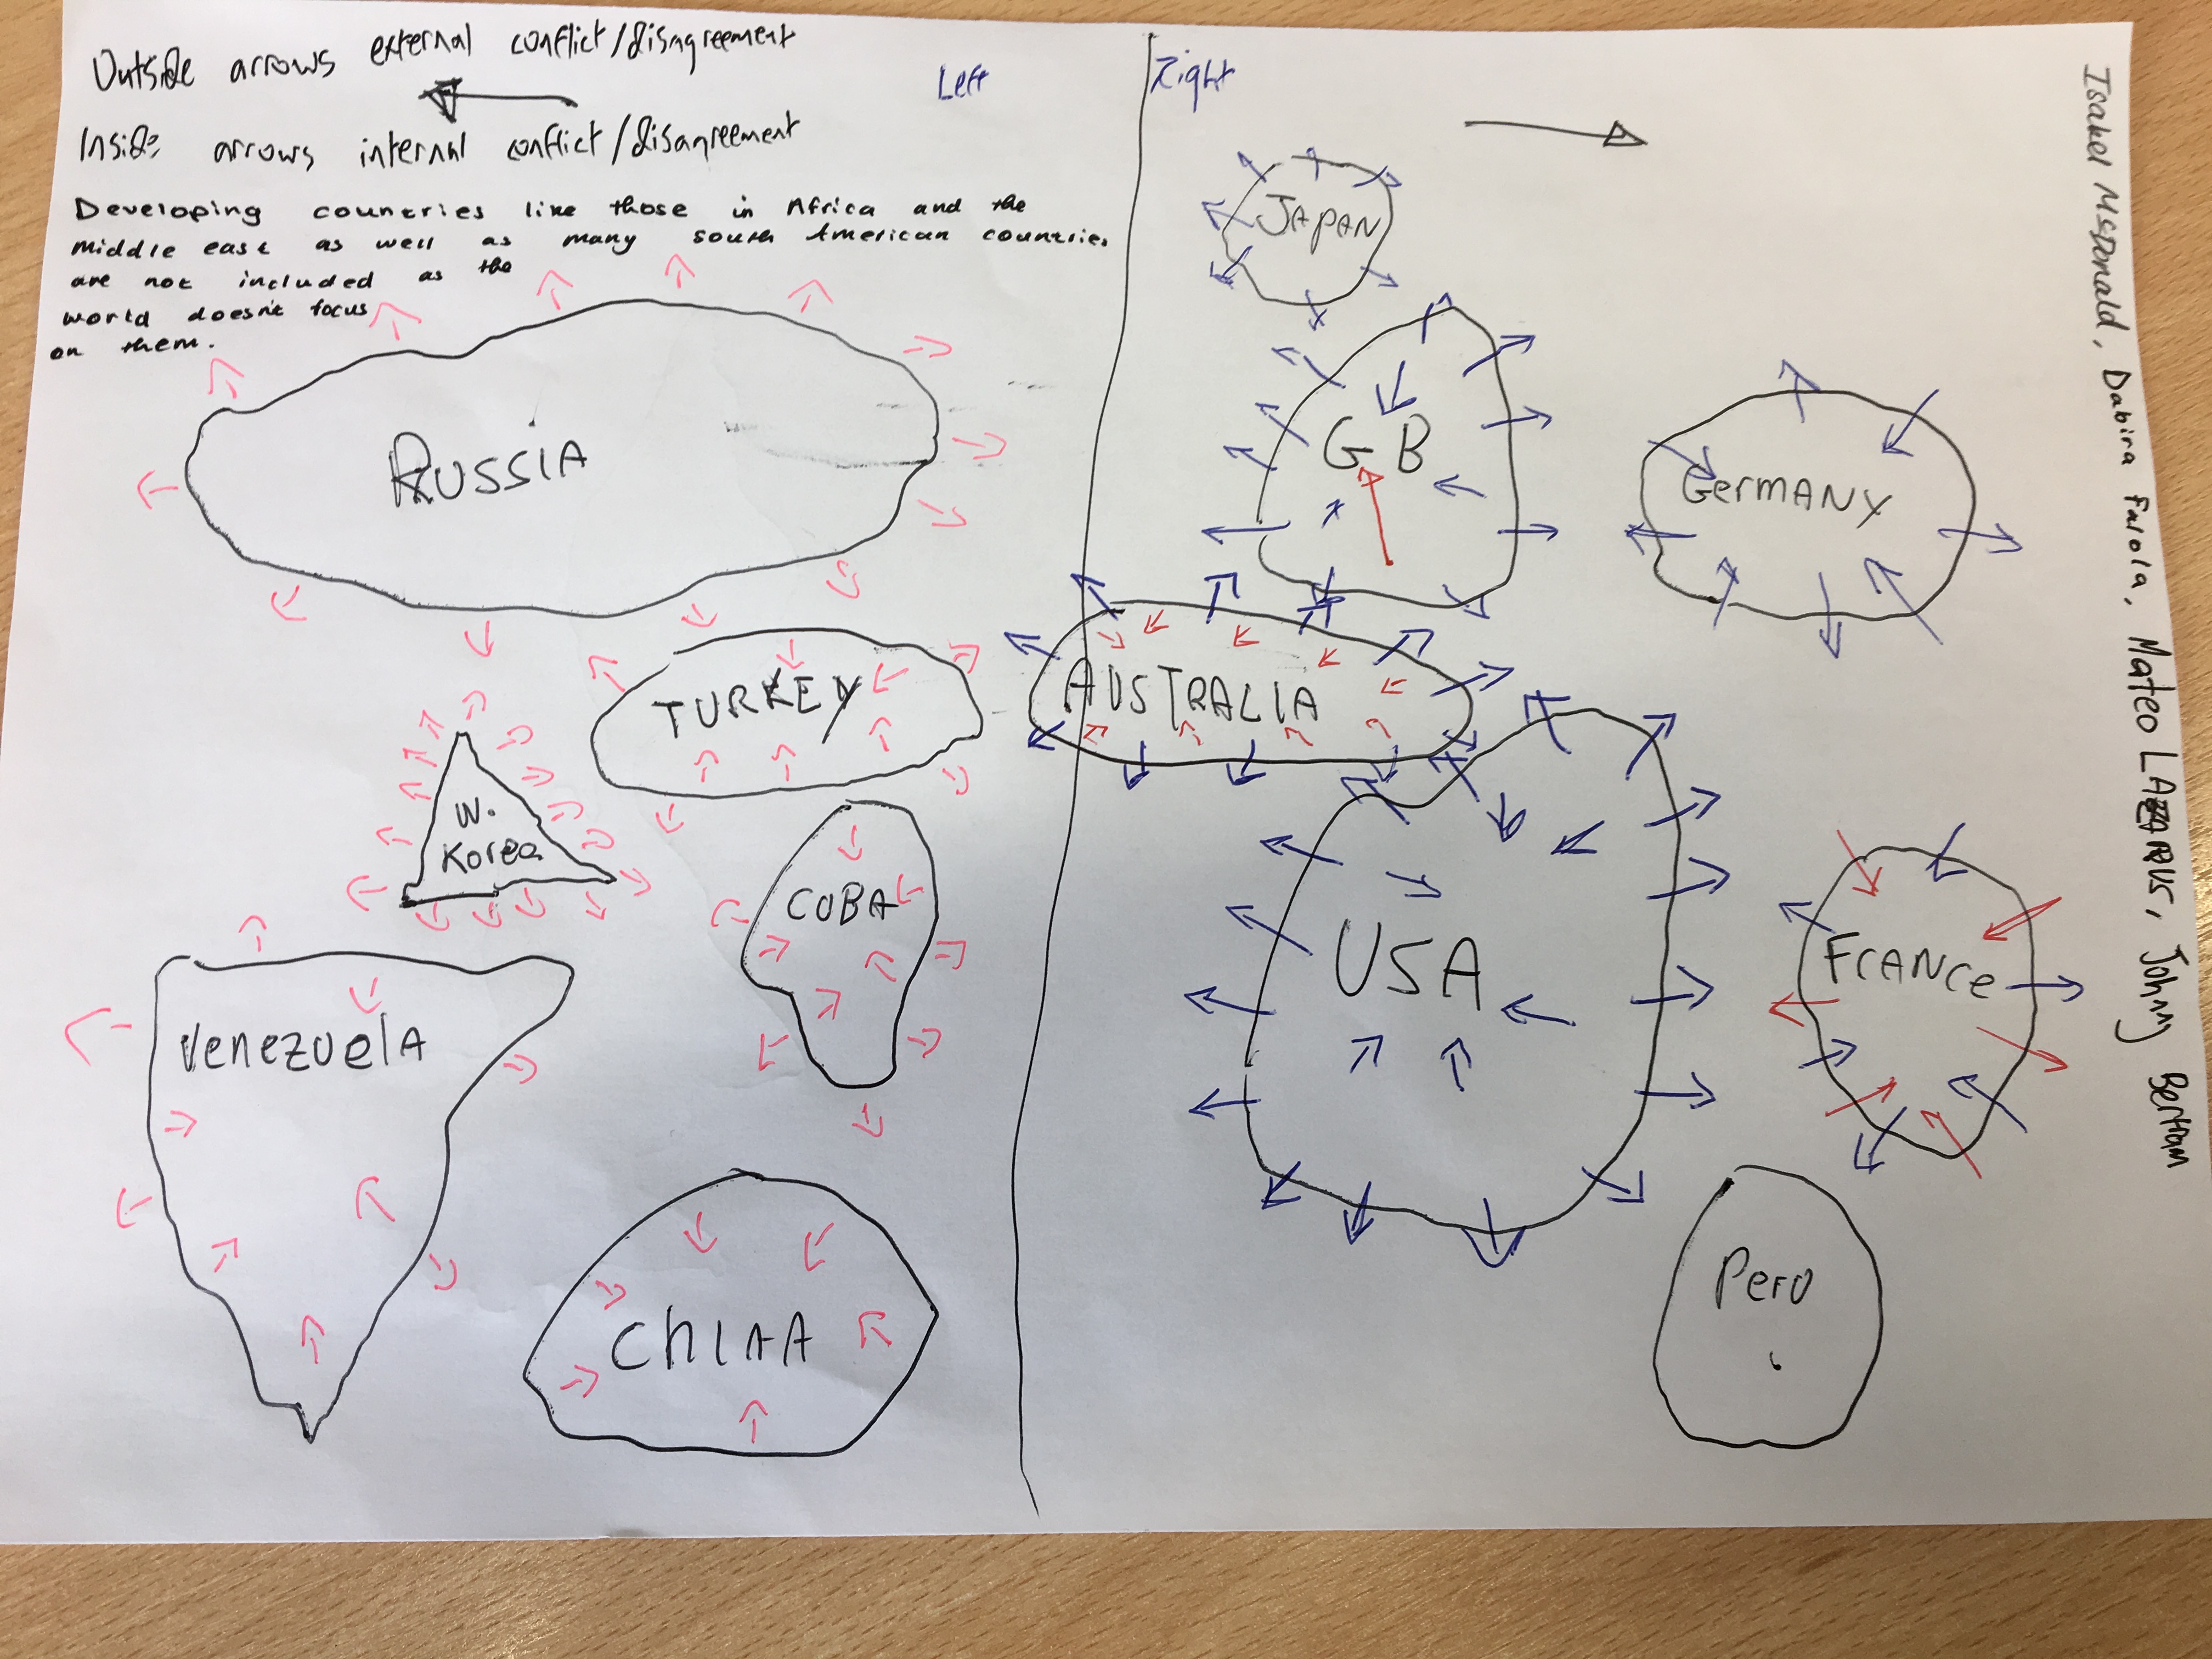 Outside arrows external conflict/disagreement
Inside arrows internal conflict/disagreement
Developing countries like those in Africa and the
middle east as well as many south American countries
are not included as the
world doesn't focus
on them.
Left
Right
RUSSIA
TURKEY
N.
Korea
CUBA
Venezuela
CHINA
JAPAN
GB
GERMANY
AUSTRALIA
USA
FRANCE
Peru
Isabel McDonald, Dabira Falola, Mateo LAZARUS, Johnny Bertram